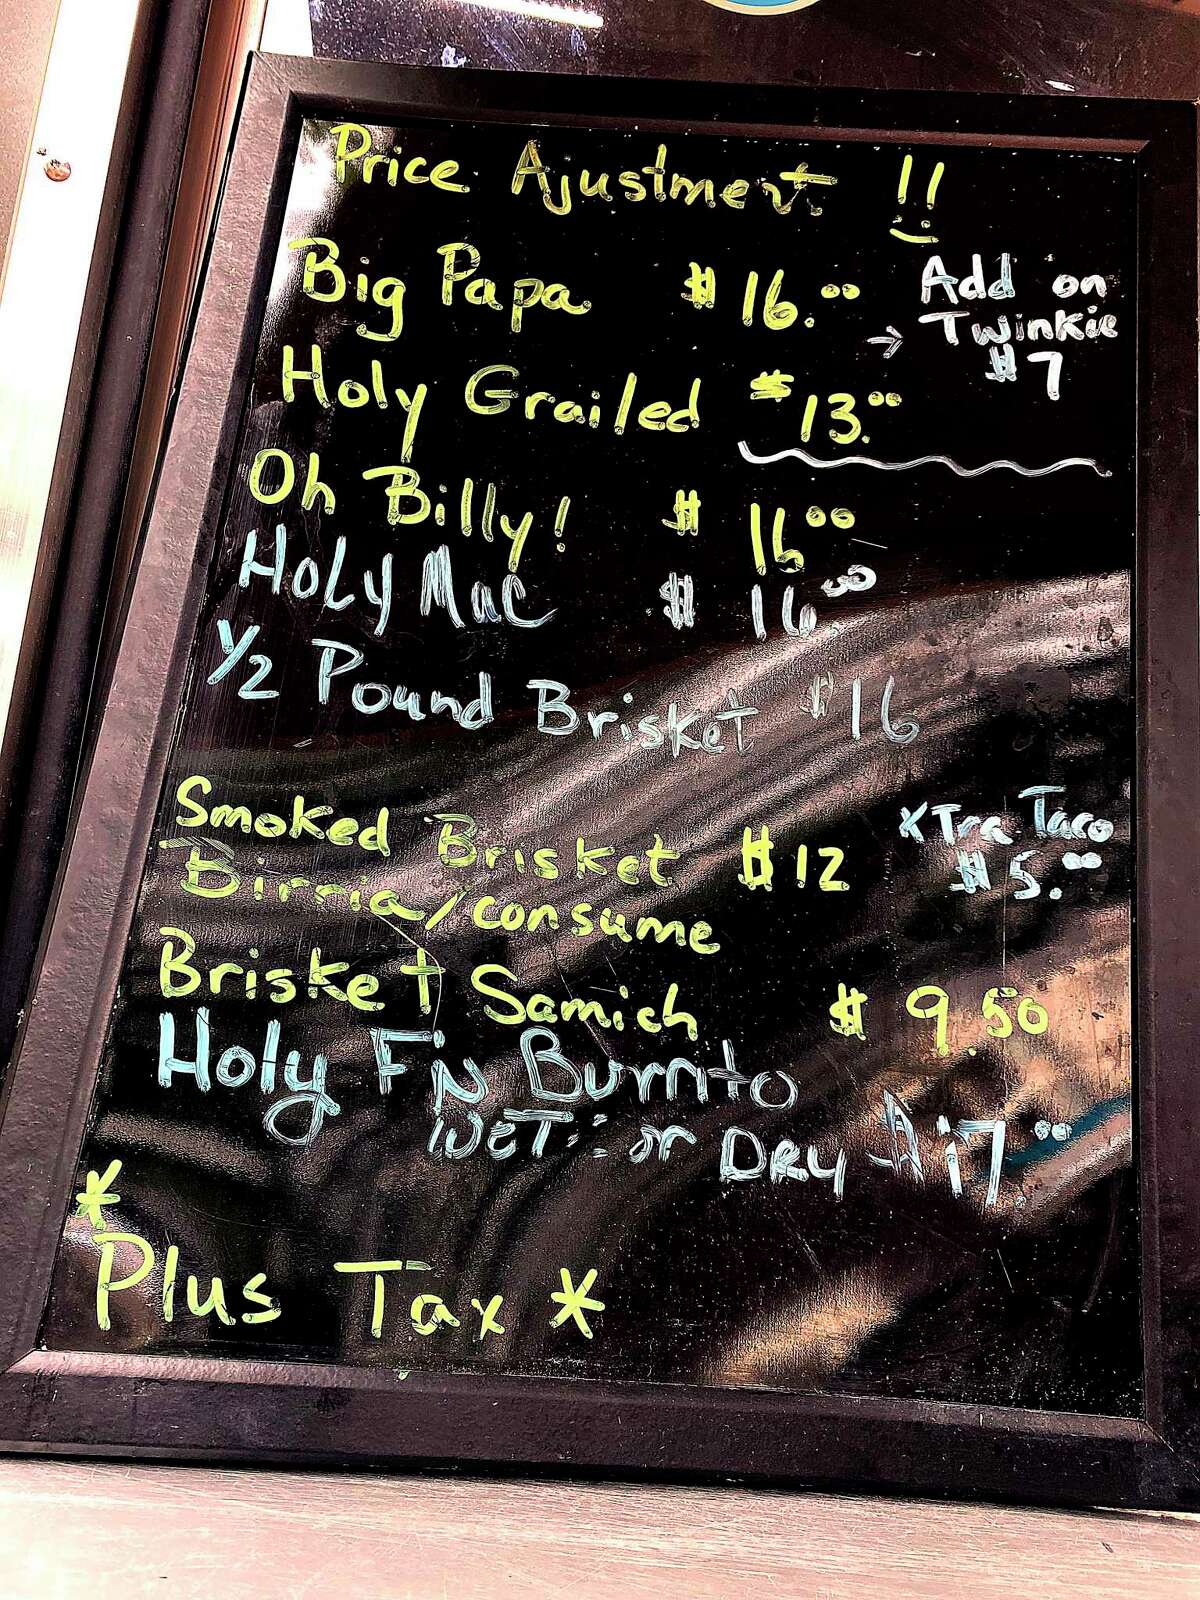 Price Ajustment !!
Big Papa $16.00
→ Add on
Twinkie
$7
Holy Grailed $13.00
Oh Billy! $16.00
Holy Mac $16.00
1/2 Pound Brisket $16
Smoked Brisket $12
Birria/consume
xTra Taco
$5.00
Brisket Samich $9.50
Holy F'N Burrito
WET or DRY $17.00
*
Plus Tax *